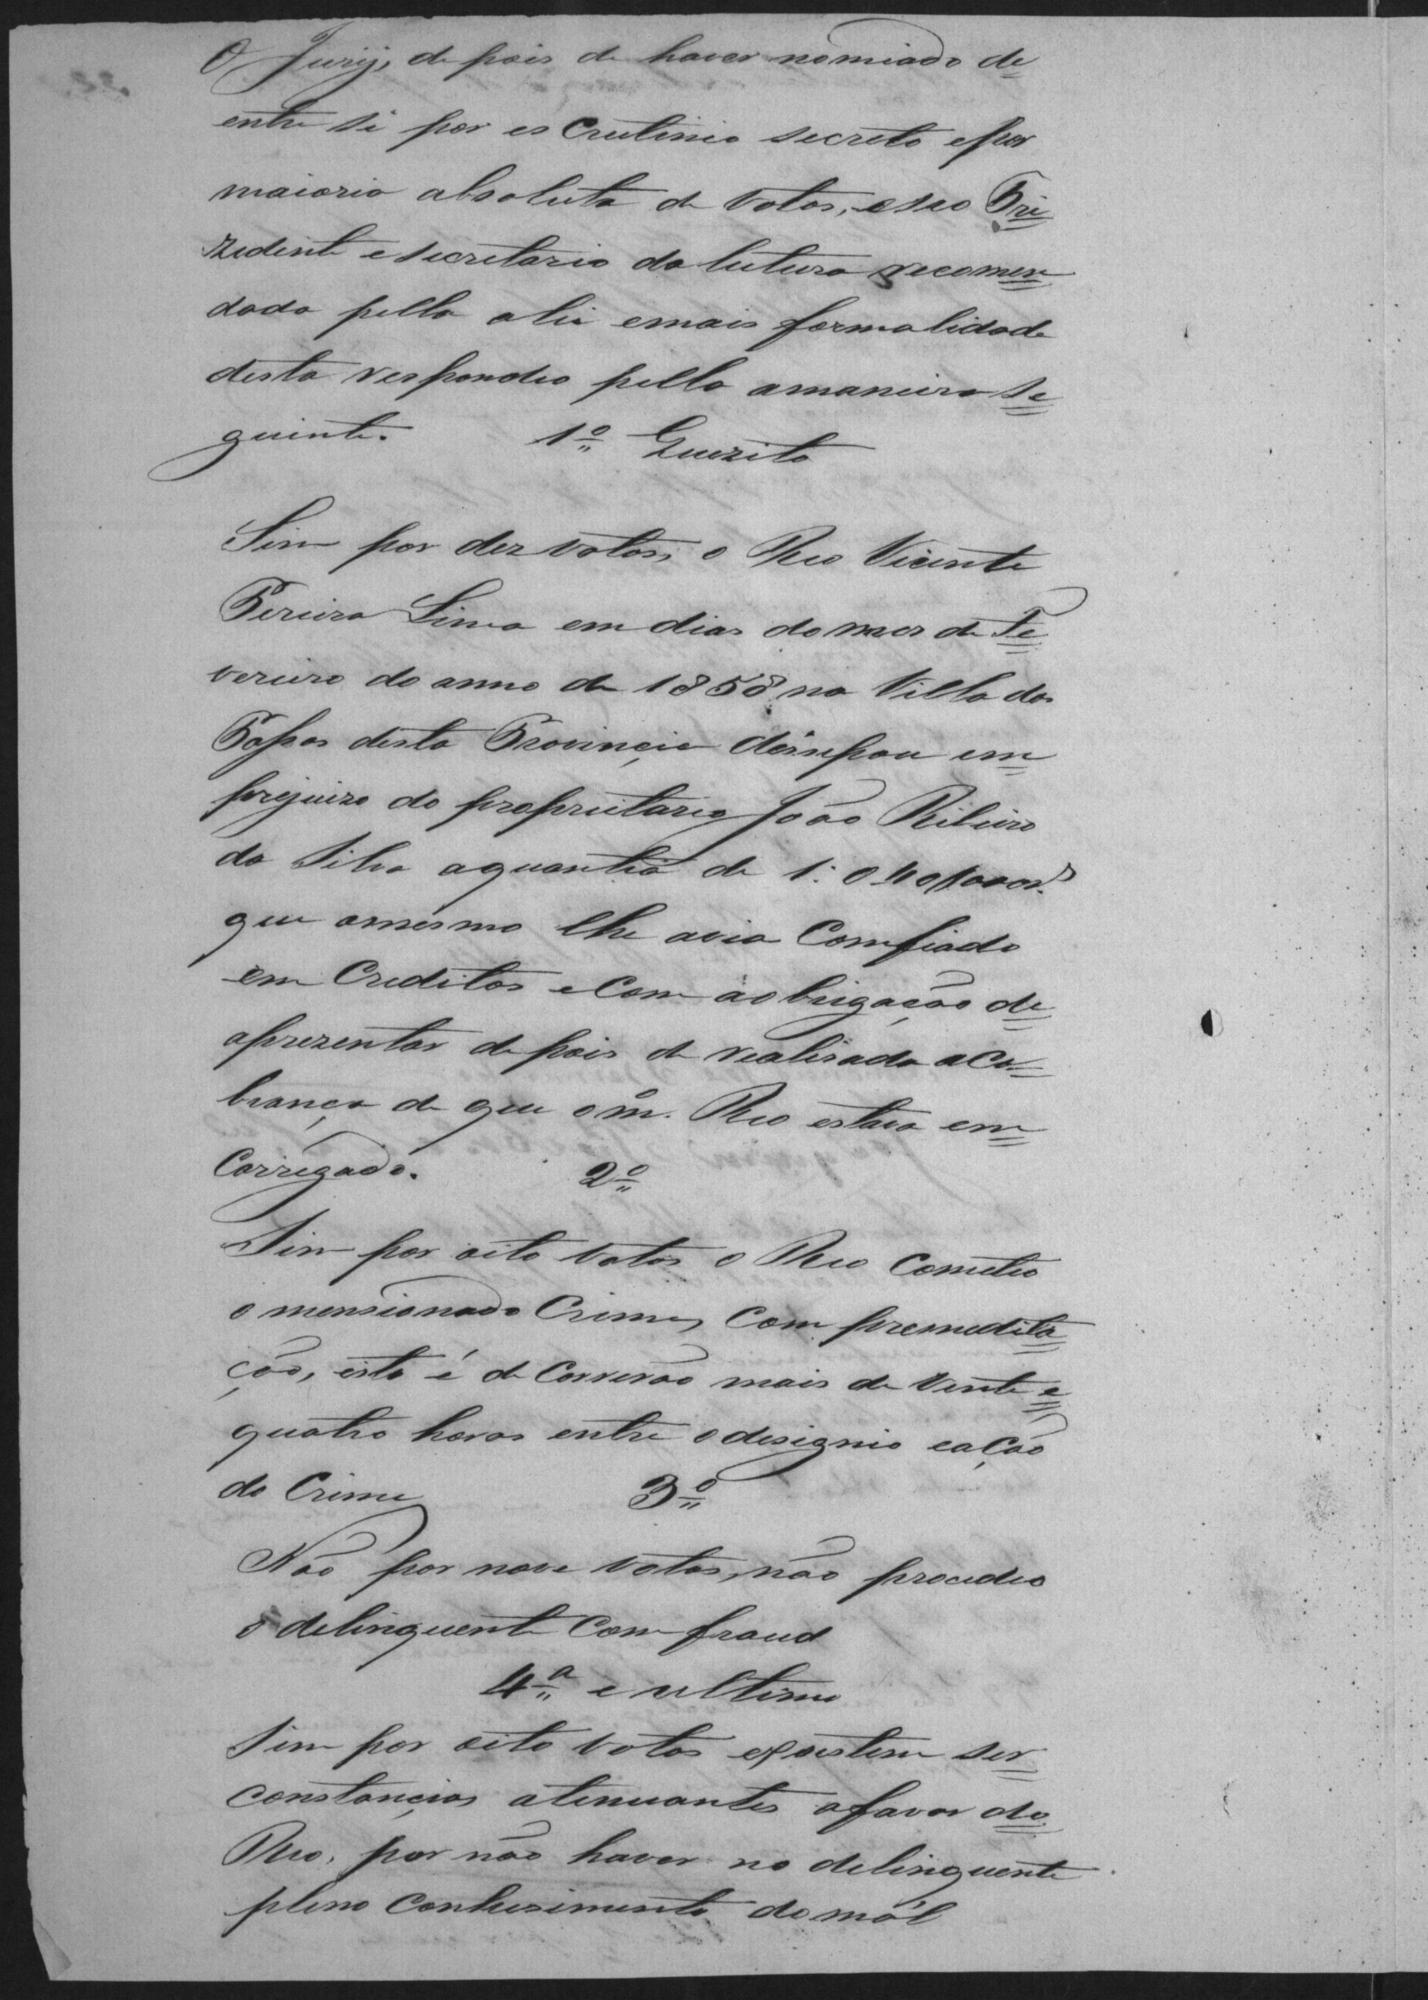 O Jury, de pois de haver nomiado de
entre si por es Crutinio secreto epor
maioria absoluta de votos, oseo Pri
zedente e secretario da leitura recomen
dada pella alei emais formalidade
desta respondeo pella amaneira se
guinte. 1º Quezito
Sim por dez votos, o Reo Vicente
Pereira Lima em dias do mez de Fe
vereiro do anno de 1858 na Villa dos
Passos desta Provinçia dessipou em
prejuizo do proprietario João Ribeiro
da Silva aquantia de
que omesmo lhe avia Comfiado
em Creditos e Com aobrigação de
aprezentar de pois de realisada aCo
brança de que o m. Reo estava em
Carregado. 2º
Sim por oito votos o Reo Cometeo
o mensionado Crime, Com premedita
ção, isto é de Correrão mais de vinte e
quatro horas entre odesignio eação
do Crime 3º
Não por nove votos, não procedeo
o delinquente Com fraud
4ª e ultimo
Sim por oito votos existem ser
constançias atenuantes afavor do
Reo, por não haver no delinquente
pleno Conhesimento do mál